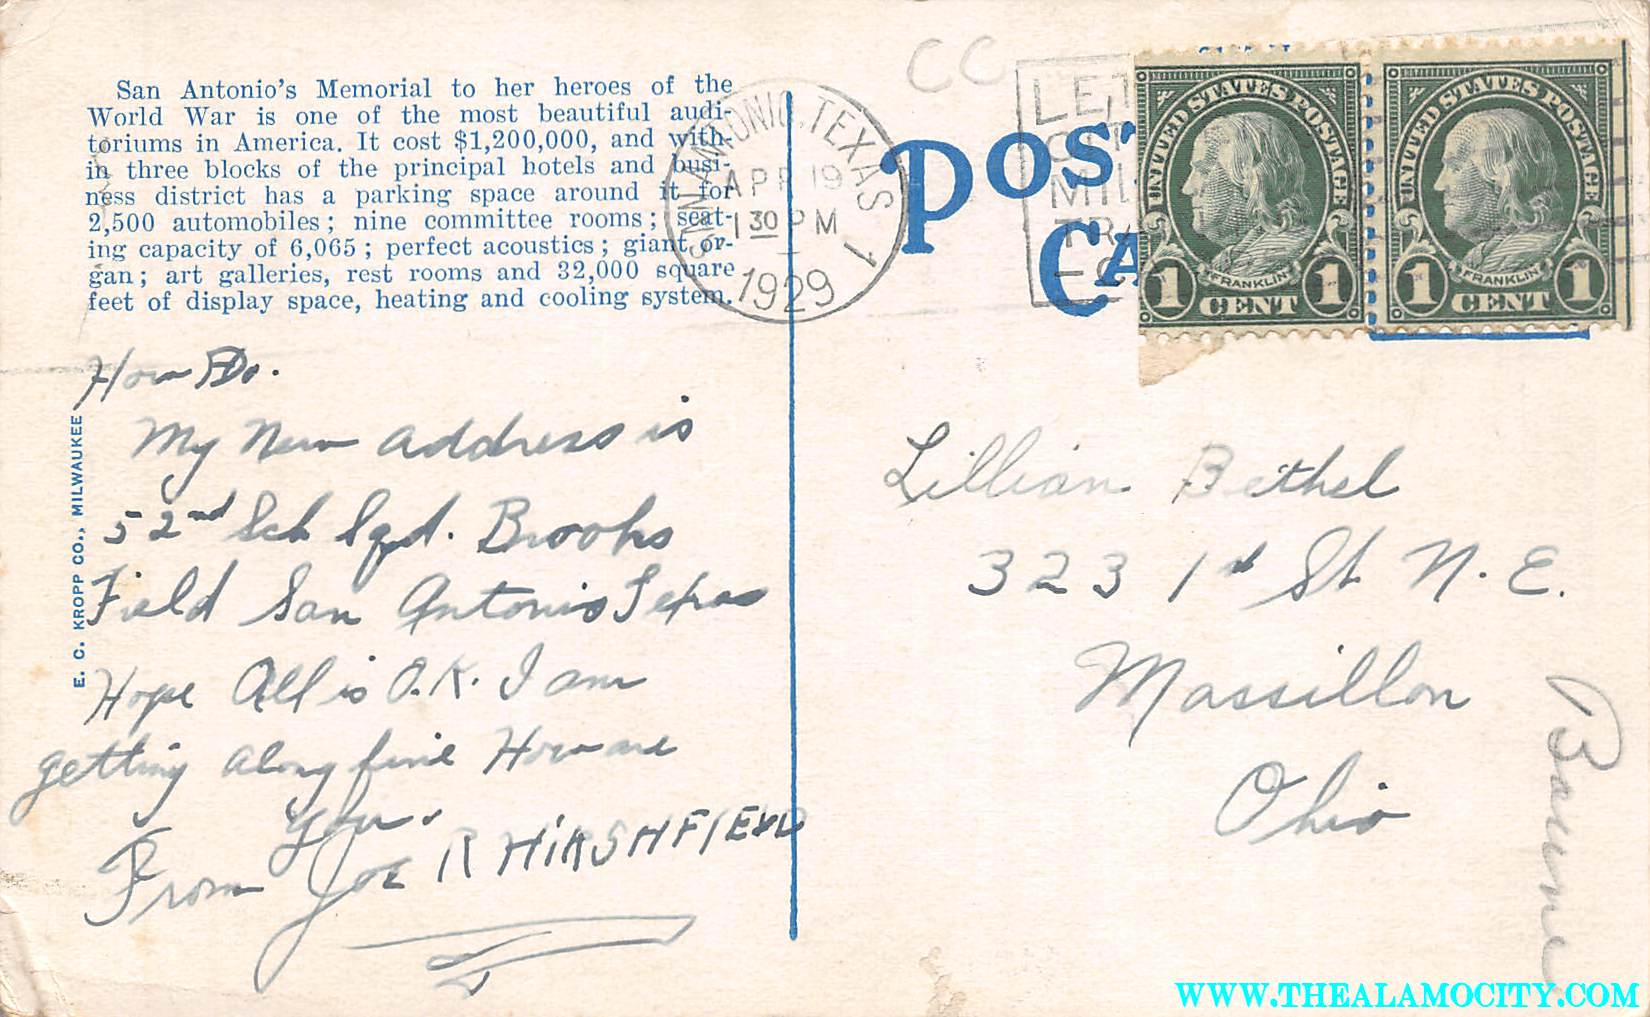 San Antonio's Memorial to her heroes of the
World War is one of the most beautiful audi-
toriums in America. It cost $1,200,000, and with-
in three blocks of the principal hotels and busi-
ness district has a parking space around it for
2,500 automobiles; nine committee rooms; seat-
ing capacity of 6,065; perfect acoustics; giant or-
gan; art galleries, rest rooms and 32,000 square
feet of display space, heating and cooling system.
E. C. KROPP CO., MILWAUKEE
How Do.
My New address is
52nd Sch Sqd. Brooks
Field San Antonio Texas
Hope All is O.K. I am
getting along fine How are
you.
From Joe R HIRSHFIELD
SAN ANTONIO, TEXAS
APR 19
1 30 PM
1929
1
CC
POST
CA
UNITED STATES POSTAGE
FRANKLIN
1 CENT 1
UNITED STATES POSTAGE
FRANKLIN
1 CENT 1
Lillian Bethel
323 1st St N. E.
Massillon
Ohio
WWW.THEALAMOCITY.COM